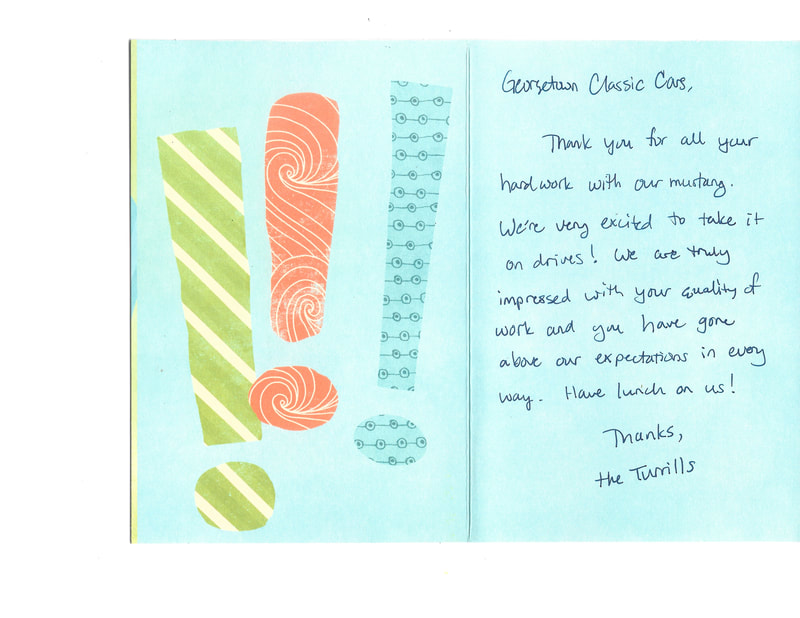 Georgetown Classic Cars,
Thank you for all your
hard work with our mustang.
We're very excited to take it
on drives! We are truly
impressed with your quality of
work and you have gone
above our expectations in every
way. Have lunch on us!
Thanks,
the Turrills